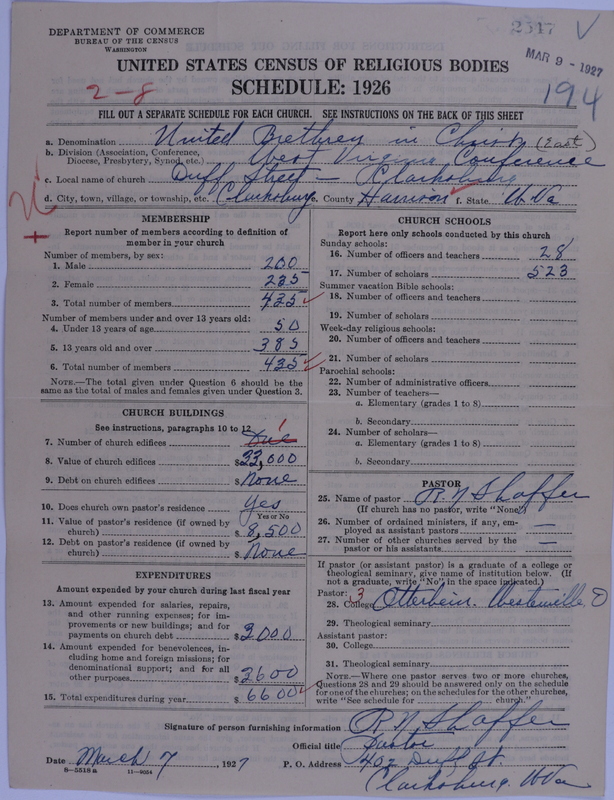 DEPARTMENT OF COMMERCE
BUREAU OF THE CENSUS
WASHINGTON
2317
MAR 9 - 1927
194
UNITED STATES CENSUS OF RELIGIOUS BODIES
SCHEDULE: 1926
2-8
FILL OUT A SEPARATE SCHEDULE FOR EACH CHURCH. SEE INSTRUCTIONS ON THE BACK OF THIS SHEET
a. Denomination United Brethren in Christ (East)
b. Division (Association, Conference, Diocese, Presbytery, Synod, etc.) West Virginia Conference
c. Local name of church Duff Street - Clarksburg
d. City, town, village, or township, etc. Clarksburg e. County Harrison f. State W Va
MEMBERSHIP
Report number of members according to definition of
member in your church
Number of members, by sex:
1. Male 200
2. Female 235
3. Total number of members 435
Number of members under and over 13 years old:
4. Under 13 years of age 50
5. 13 years old and over 385
6. Total number of members 435
NOTE.—The total given under Question 6 should be the
same as the total of males and females given under Question 3.
CHURCH BUILDINGS
See instructions, paragraphs 10 to 12
7. Number of church edifices One 1
8. Value of church edifices $33,000
9. Debt on church edifices $None
10. Does church own pastor's residence Yes
Yes or No
11. Value of pastor's residence (if owned by
church) $8,500
12. Debt on pastor's residence (if owned by
church) $None
EXPENDITURES
Amount expended by your church during last fiscal year
13. Amount expended for salaries, repairs,
and other running expenses; for im-
provements or new buildings; and for
payments on church debt $3000
14. Amount expended for benevolences, in-
cluding home and foreign missions; for
denominational support; and for all
other purposes $2600
15. Total expenditures during year $6600
CHURCH SCHOOLS
Report here only schools conducted by this church
Sunday schools:
16. Number of officers and teachers 28
17. Number of scholars 523
Summer vacation Bible schools:
18. Number of officers and teachers
19. Number of scholars
Week-day religious schools:
20. Number of officers and teachers
21. Number of scholars
Parochial schools:
22. Number of administrative officers
23. Number of teachers—
a. Elementary (grades 1 to 8)
b. Secondary
24. Number of scholars—
a. Elementary (grades 1 to 8)
b. Secondary
PASTOR
25. Name of pastor R N Shaffer
(If church has no pastor, write "None")
26. Number of ordained ministers, if any, em-
ployed as assistant pastors —
27. Number of other churches served by the
pastor or his assistants —
If pastor (or assistant pastor) is a graduate of a college or
theological seminary, give name of institution below. (If
not a graduate, write "No" in the space indicated.)
Pastor: 3
28. College Otterbein. Westerville, O
29. Theological seminary
Assistant pastor:
30. College
31. Theological seminary
NOTE.—Where one pastor serves two or more churches,
Questions 28 and 29 should be answered only on the schedule
for one of the churches; on the schedules for the other churches,
write "See schedule for church."
Signature of person furnishing information R N Shaffer
Official title Pastor
Date March 7, 1927 P. O. Address 402 Duff St.
8-5518a 11-8054
Clarksburg. W Va